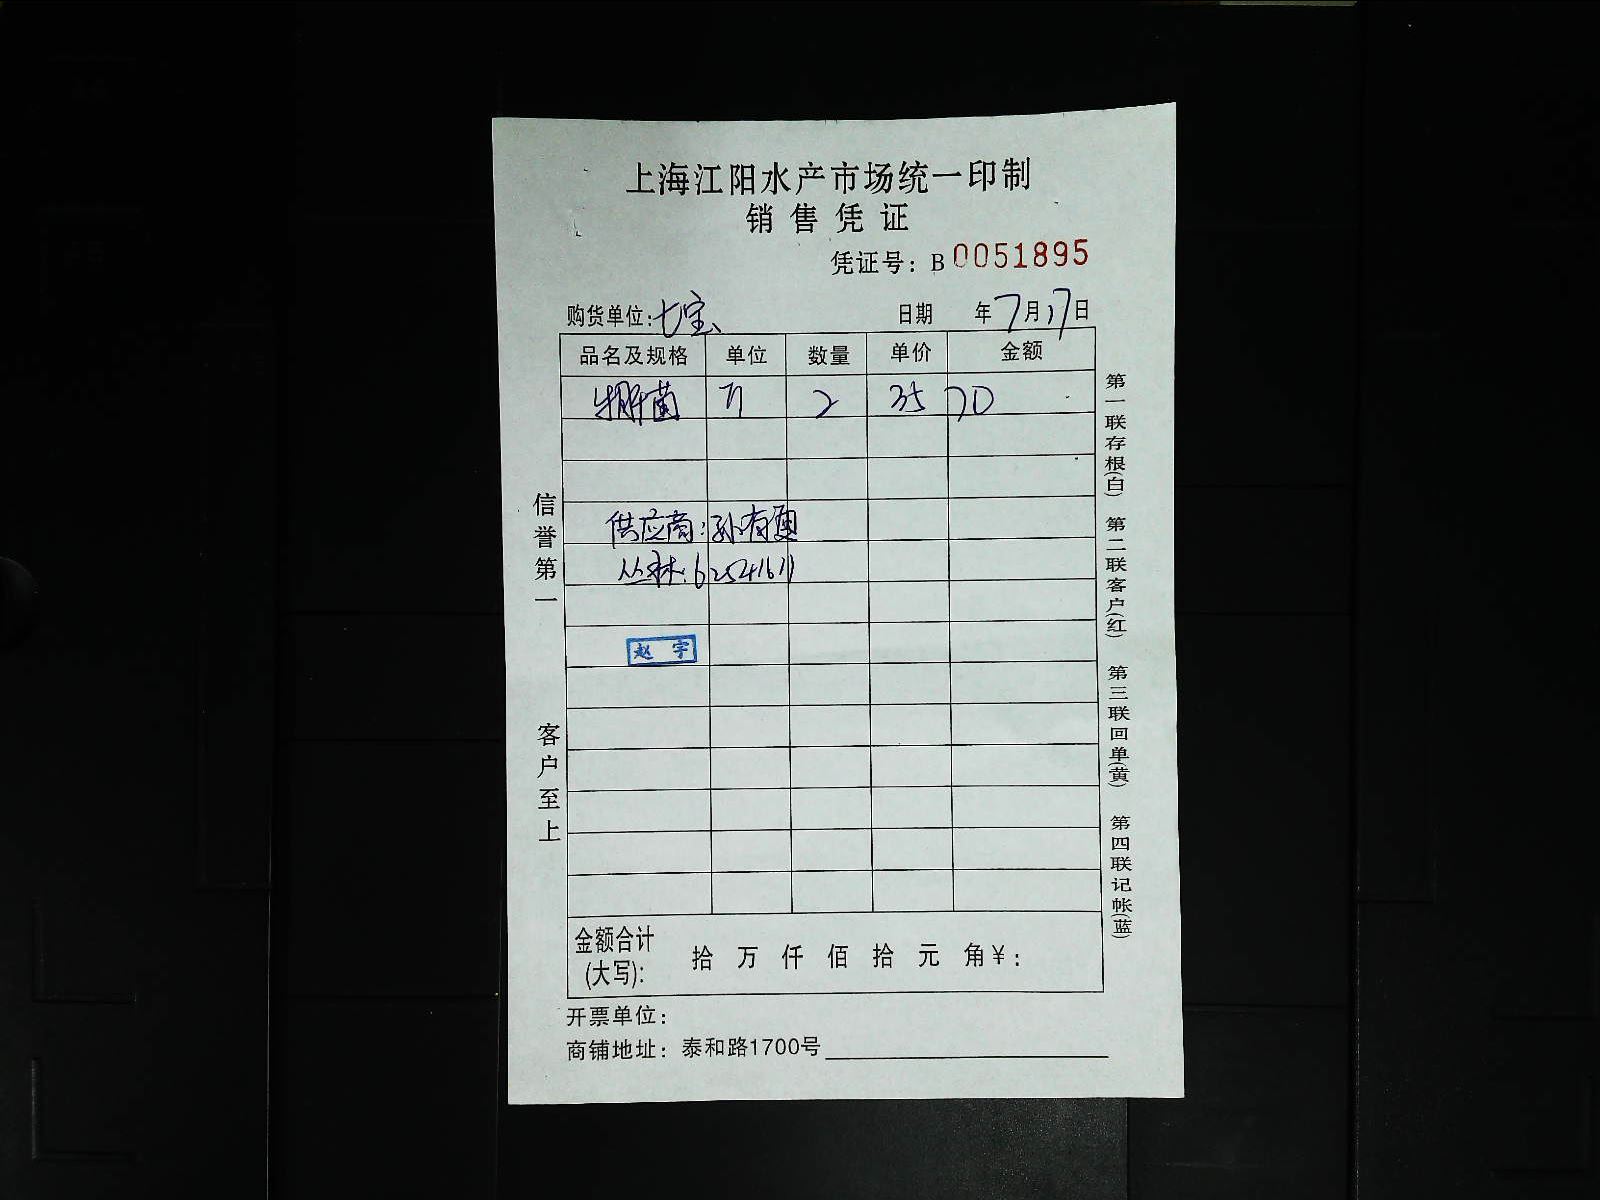 上海江阳水产市场统一印制
销售凭证
凭证号：B 0051895
购货单位：七宝 日期 年7月17日
品名及规格 单位 数量 单价 金额
牛肝菌 斤 2 35 70
供应商：孙有通
丛林：62541611
赵宇
金额合计(大写)： 拾 万 仟 佰 拾 元 角 ¥：
开票单位：
商铺地址：泰和路1700号
信誉第一 客户至上
第一联存根(白) 第二联客户(红) 第三联回单(黄) 第四联记帐(蓝)